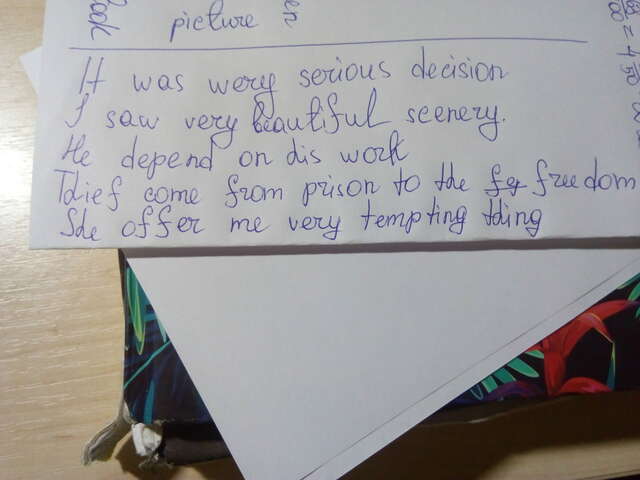 Book
picture
It was wery serious decision
I saw very beautiful scenery.
He depend on his work
Thief come from prison to the freedom
She offer me very tempting thing